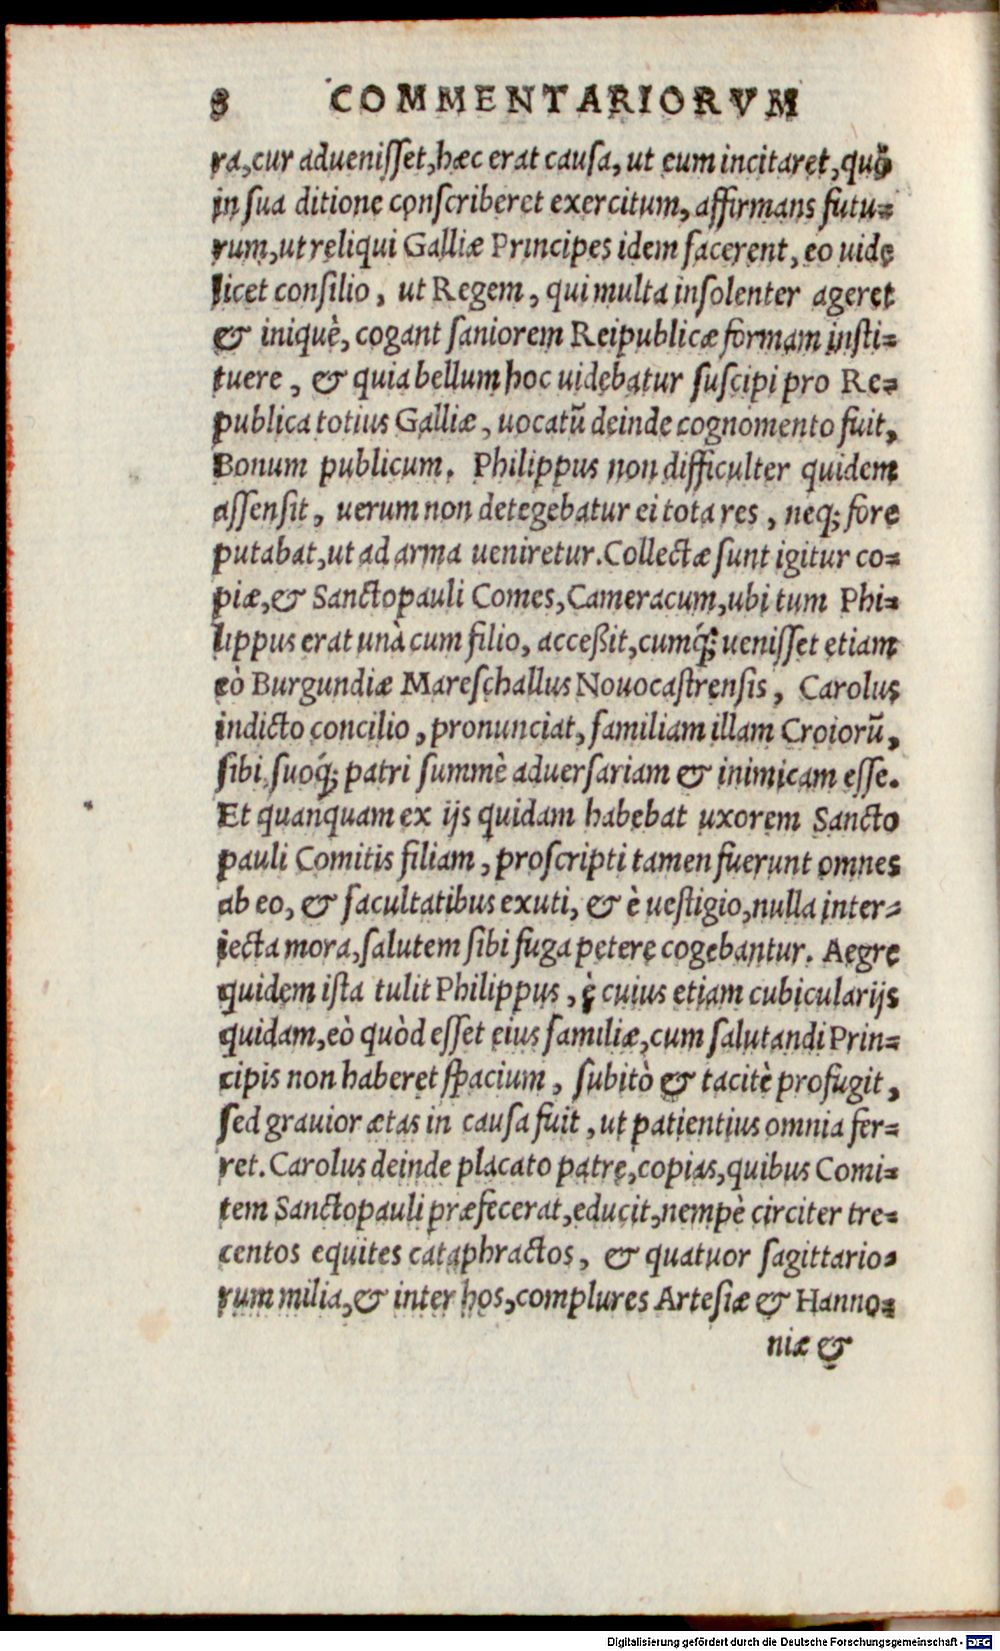 8 COMMENTARIORVM
ra,cur aduenisset,hæc erat causa, ut eum incitaret, quò
in sua ditione conscriberet exercitum, affirmans futu=
rum,ut reliqui Galliæ Principes idem facerent, eo uide
licet consilio, ut Regem, qui multa insolenter ageret
& iniquè, cogant saniorem Reipublicæ formam insti=
tuere, & quia bellum hoc uidebatur suscipi pro Re=
publica totius Galliæ, uocatũ deinde cognomento fuit,
Bonum publicum. Philippus non difficulter quidem
assensit, uerum non detegebatur ei tota res, neq; fore
putabat, ut ad arma ueniretur. Collectæ sunt igitur co=
piæ,& Sanctopauli Comes, Cameracum, ubi tum Phi=
lippus erat unà cum filio, acceßit, cumq́; uenisset etiam
eò Burgundiæ Mareschallus Nouocastrensis, Carolus
indicto concilio, pronunciat, familiam illam Croiorũ,
sibi suoq́; patri summè aduersariam & inimicam esse.
Et quanquam ex ijs quidam habebat uxorem Sancto
pauli Comitis filiam, proscripti tamen fuerunt omnes
ab eo, & facultatibus exuti, & è uestigio, nulla inter=
iecta mora, salutem sibi fuga petere cogebantur. Aegre
quidem ista tulit Philippus, è cuius etiam cubicularijs
quidam, eò quòd esset eius familiæ, cum salutandi Prin=
cipis non haberet spacium, subitò & tacitè profugit,
sed grauior ætas in causa fuit, ut patientius omnia fer=
ret. Carolus deinde placato patre, copias, quibus Comi=
tem Sanctopauli præfecerat, educit, nempè circiter tre=
centos equites cataphractos, & quatuor sagittario=
rum milia, & inter hos, complures Artesiæ & Hanno=
niæ &
Digitalisierung gefördert durch die Deutsche Forschungsgemeinschaft - DFG